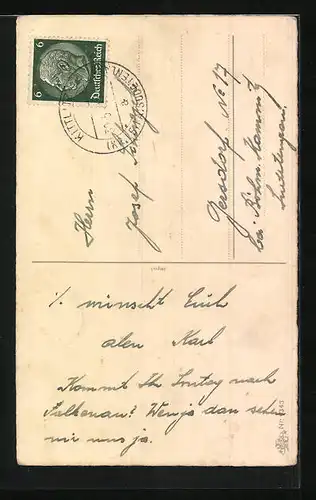 6 Deutsches Reich 6
Herrn
Josef
Gersdorf No 17
bei Böhm. Kamnitz
Sudetengau
wünscht Euch
allen Karl
Kommt Ihr Sontag nach
Falkenau? Wenja dan sehen
wir uns ja.